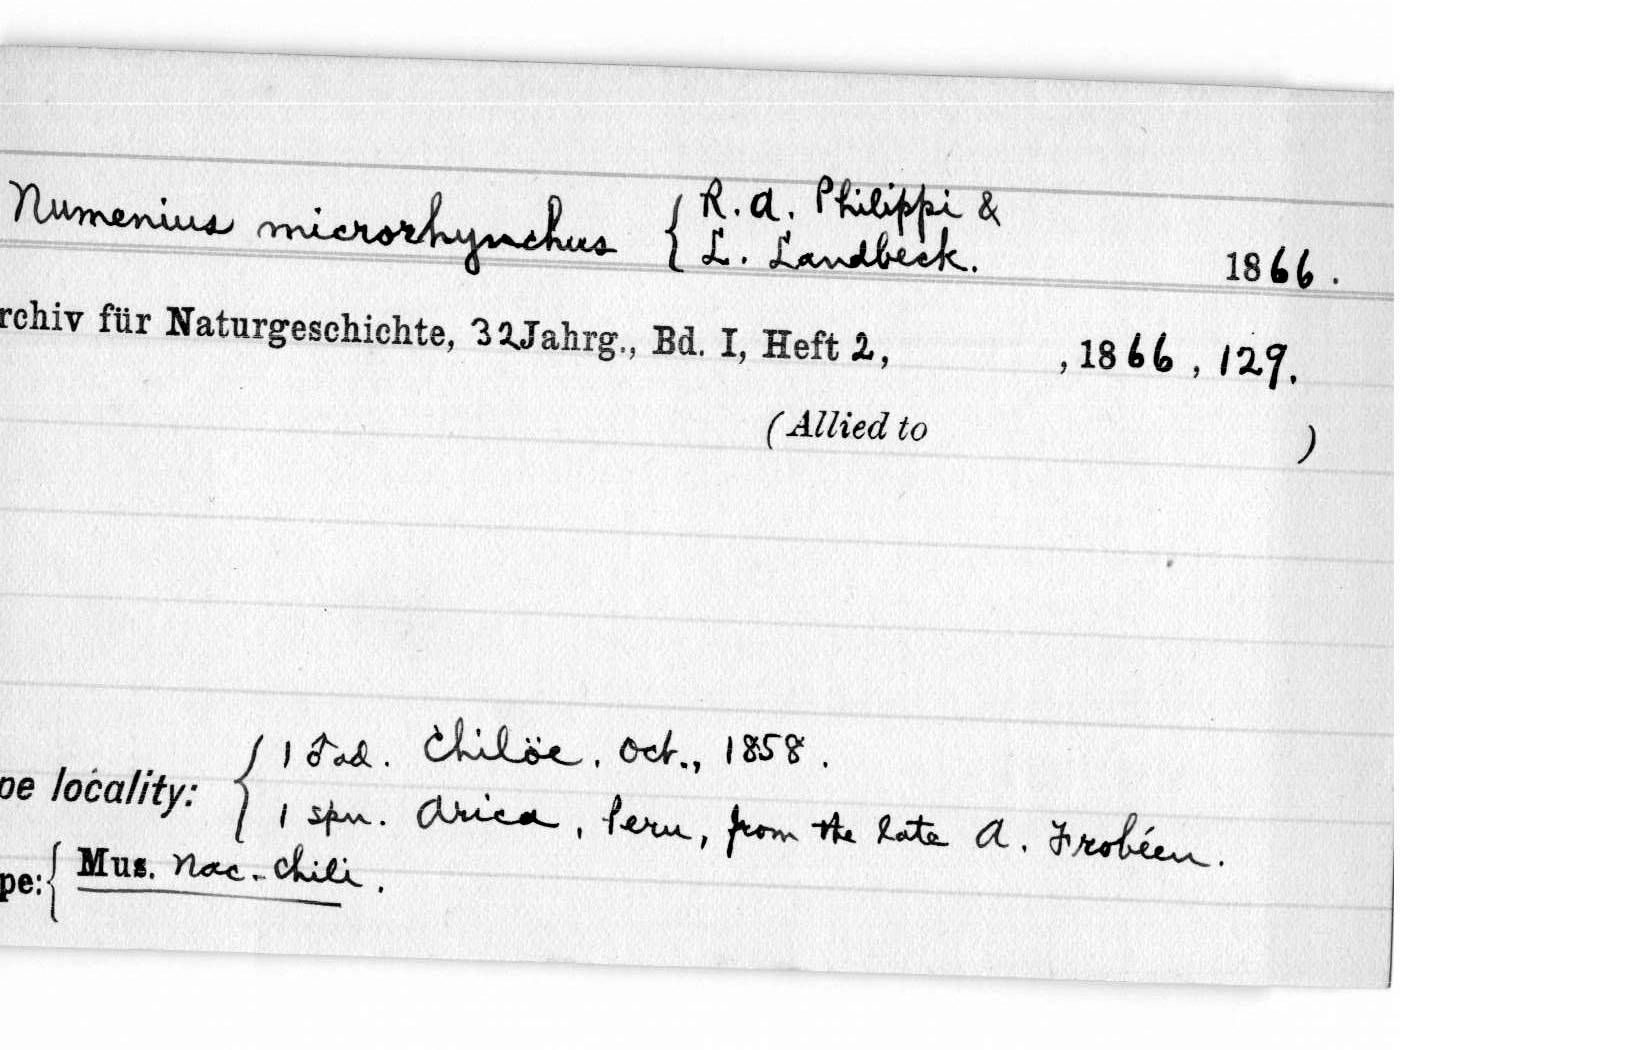 Numenius microrhynchus { R. A. Philippi &
L. Landbeck. 1866.
rchiv für Naturgeschichte, 32 Jahrg., Bd. I, Heft 2, , 1866, 129.
(Allied to )
pe locality: { 1 ♂ ad. Chilöe, Oct., 1858.
1 spn. Arica, Peru, from the late A. Frobéen.
pe: { Mus. Nac. Chili.